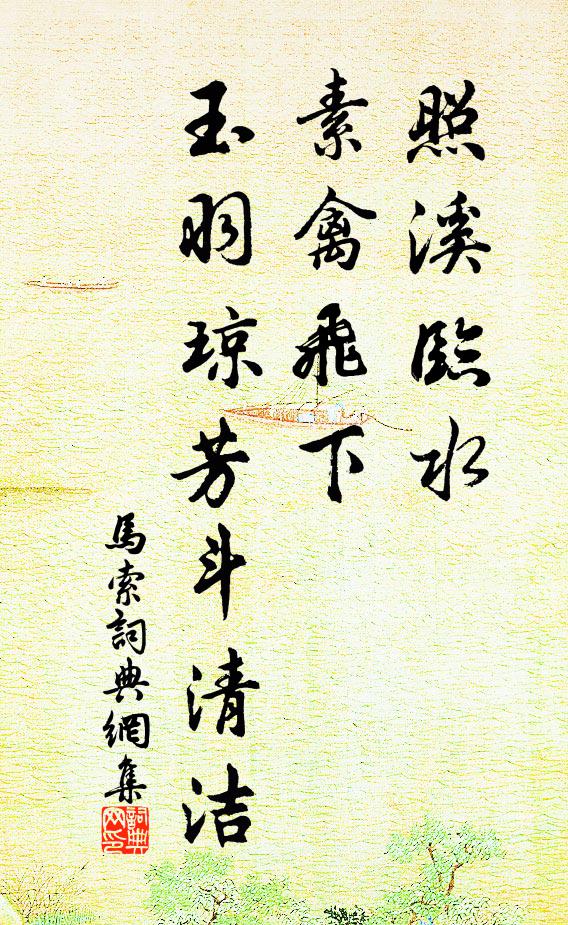 照溪臨水
素禽飛下
玉羽瓊芳斗清洁
馬索詞典網集
詞典
网印